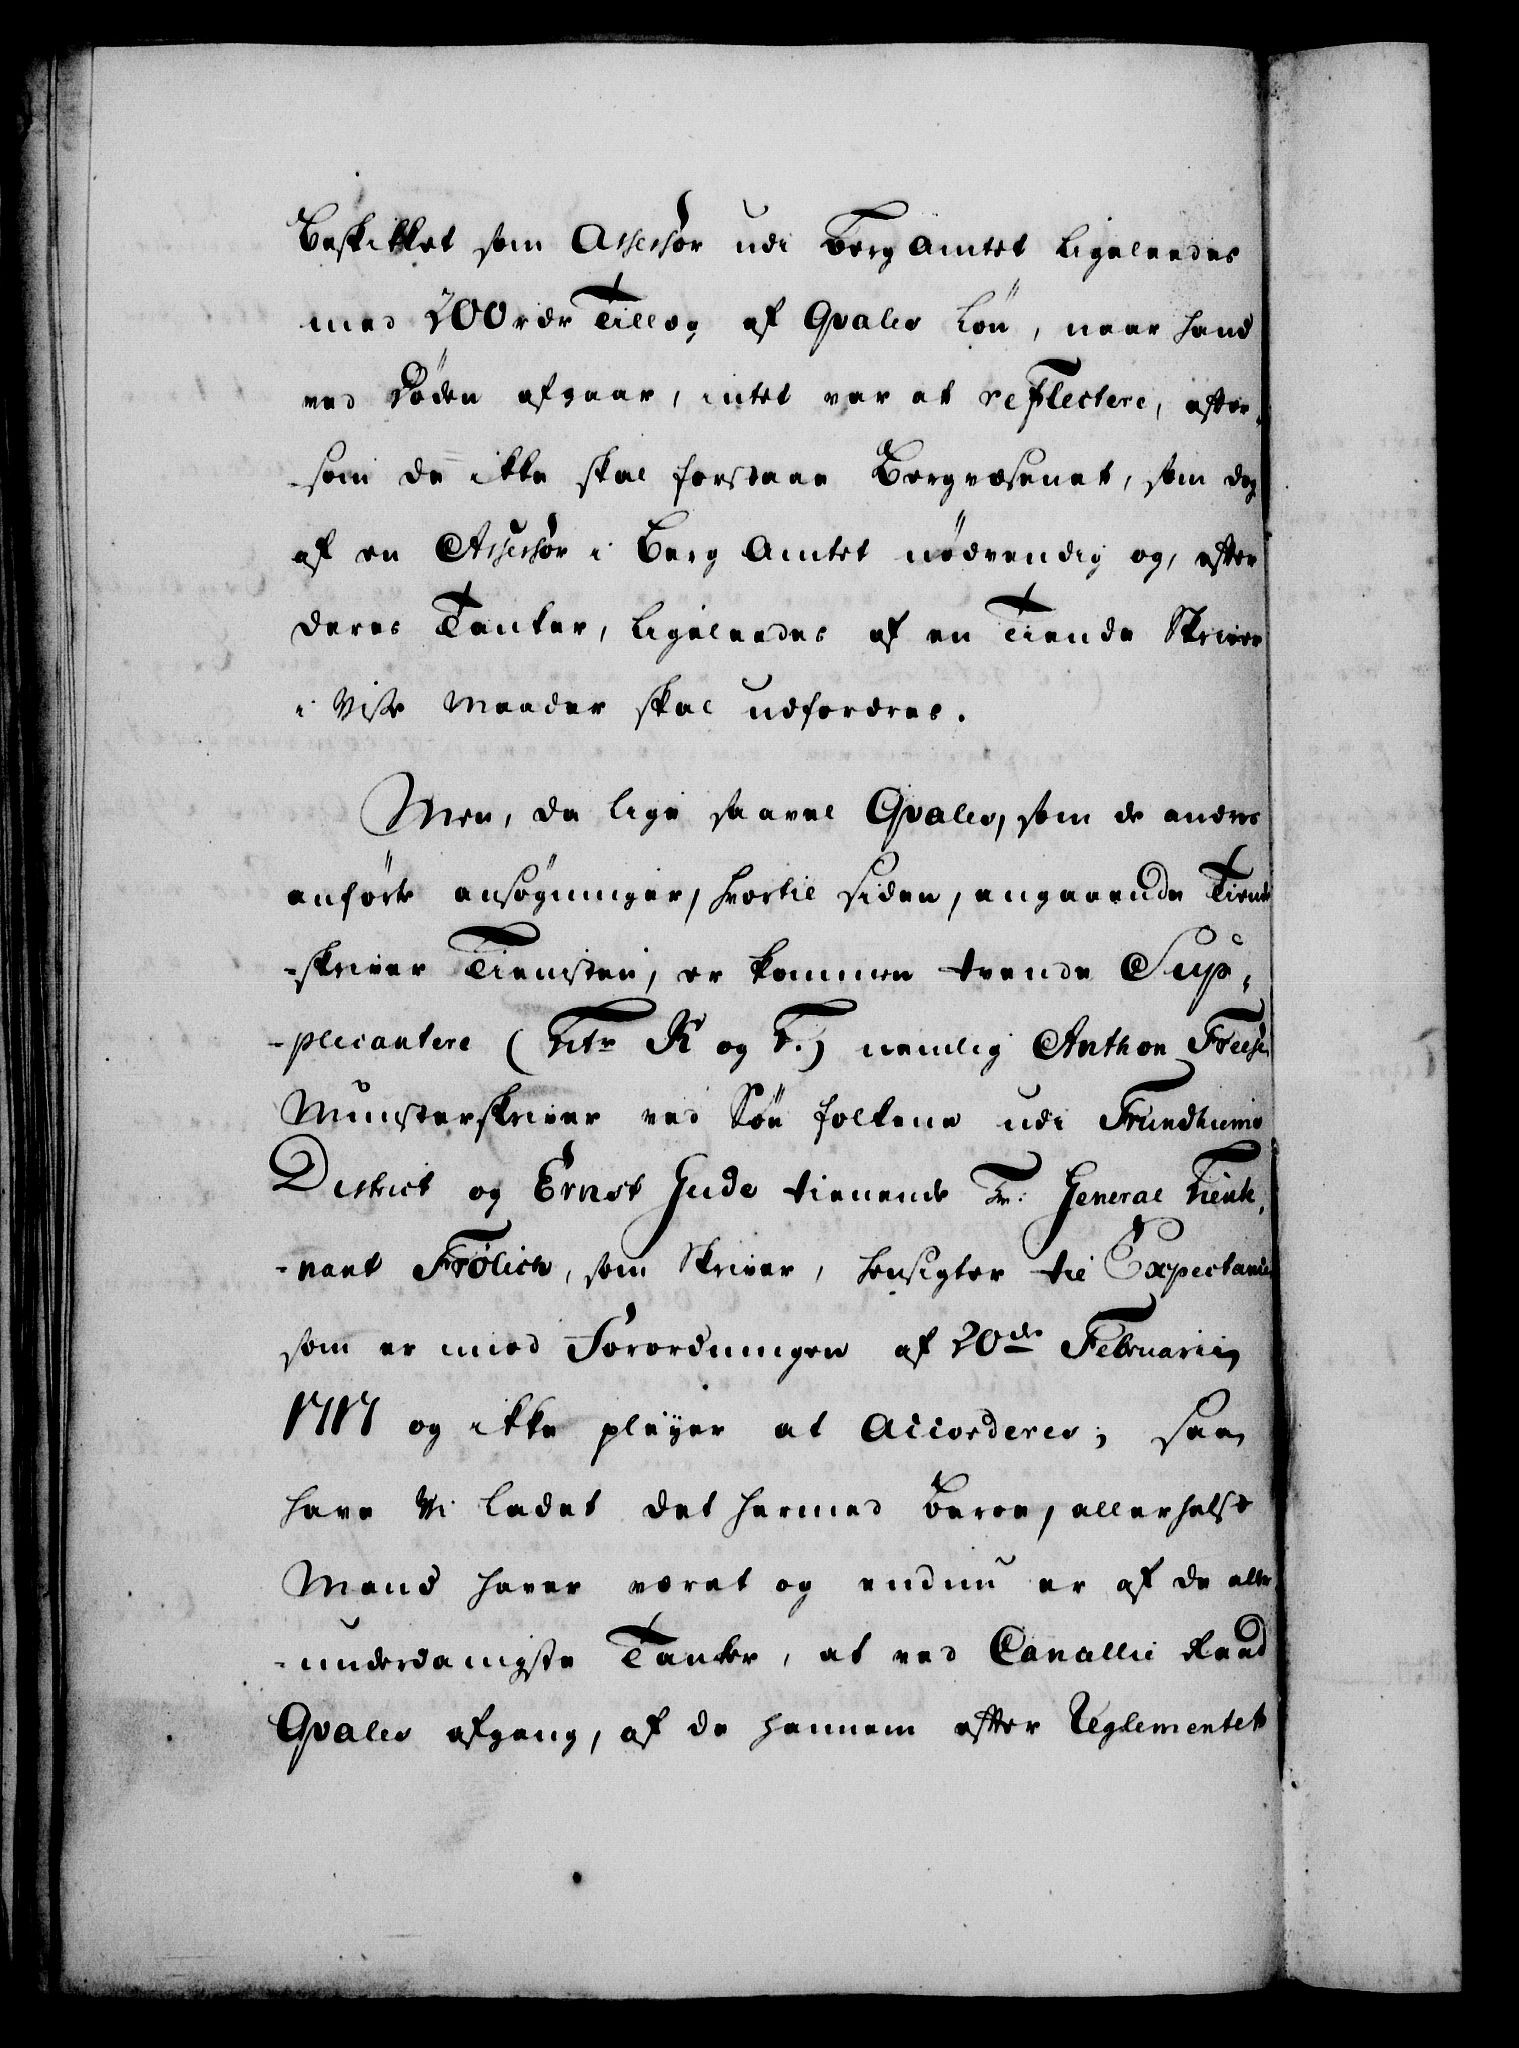 Beskikket som Assessor udi Berg Amtet ligeleedes
med 200 rdr Tillæg af Qvales Løn, naar hand
ved Døden afgaar, intet var at reflectere, efter-
-som de ikke skal forstaae Bergvæsenet, som dog
af en Assessor i Berg Amtet nødvendig og, efter
deres Tanker, ligeleedes af en Tiende Skriver
i Visse Maader skal udfordres.
Men, da lige saavel Qvales, som de andres
anførte ansøgninger, hvortil siden, angaaende Tiende
-skriver Tienisten, er kommen tvende Sup-
-plicantere (Litr K og L.) nemlig Anthon Freese
Munsterskriver ved Søe folkene udi Trundhiems
District og Ernst Gude tienende Hr. General Lieute-
-nant Frölich, som Skriver, hensigter til Expectance
som er imod Forordningen af 20de Februarii
1717 og ikke pleyer at accorderes; saa
have Vi ladet det hermed beroe, allerhelst
Mand haver været og endnu er af de aller-
-underdanigste Tanker, at ved Cancellie Raad
Qvales afgang, af de hannem efter Reglementet